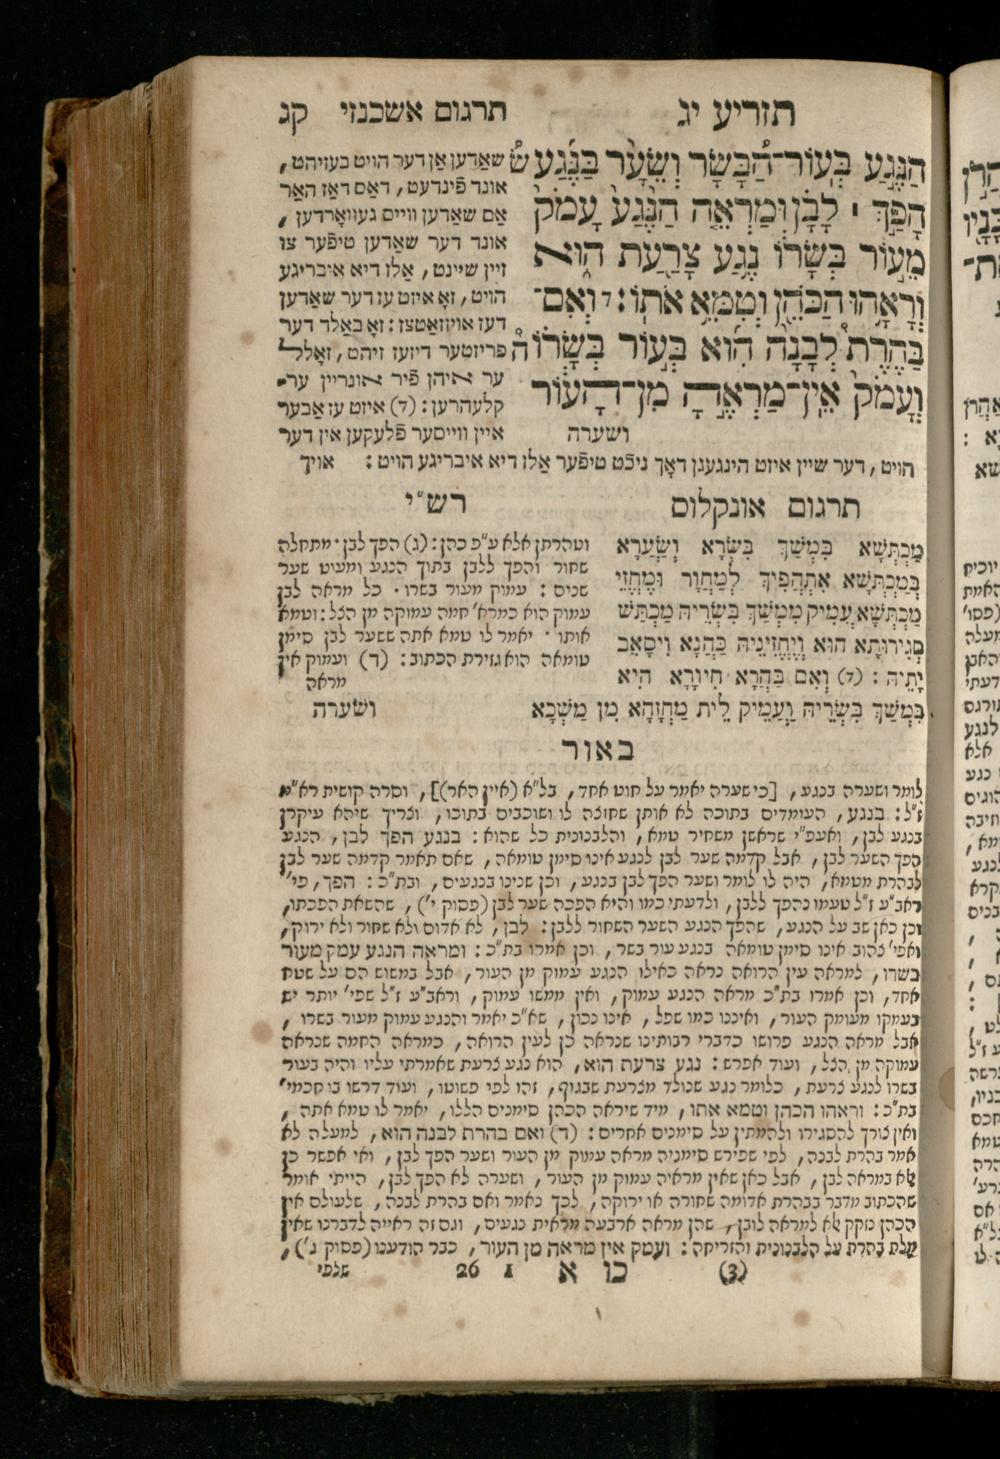 תזריע יג
תרגום אשכנזי קג
הַנֶּגַע בְּעוֹר־הַבָּשָׂר וְשֵׂעָר בַּנֶּגַע
הָפַךְ ׀ לָבָן וּמַרְאֵה הַנֶּגַע עָמֹק
מֵעוֹר בְּשָׂרוֹ נֶגַע צָרַעַת הוּא
וְרָאָהוּ הַכֹּהֵן וְטִמֵּא אֹתוֹ: ד וְאִם־
בַּהֶרֶת לְבָנָה הִוא בְּעוֹר בְּשָׂרוֹ
וְעָמֹק אֵין־מַרְאֶהָ מִן־הָעוֹר
ושערה
שאַדען אן דער הויט בעזיהט,
אונד פֿינדעט, דאס דאז האר
אם שאדען ווייס געוואָרדען,
אונד דער שאַדען טיפֿער צו
זיין שיינט, אלז דיא איבריגע
הויט, זאָ איזט עז דער שאַדען
דעז אויזזאטצז: זאָבאלד דער
פריזטער דיזעז זיהט, זאָלל
ער איהן פֿיר אונריין ער־
קלעהרען: (ד) איזט עז אבער
איין ווייסער פֿלעקען אין דער
הויט, דער שיין איזט הינגעגן דאָך ניכֿט טיפֿער אלז דיא איבריגע הויט: אויך
תרגום אונקלוס
מַכְתָּשָׁא בִּמְשַׁךְ בִּשְׂרָא וְשַׂעֲרָא
בְּמַכְתָּשָׁא אִתְהֲפִיךְ לְמִחֲוַר וּמֶחֱזֵי
מַכְתָּשָׁא עֲמִיק מִמְּשַׁךְ בִּשְׂרֵיהּ מַכְתַּשׁ
סְגִירוּתָא הוּא וְיֶחֱזִינֵיהּ כַּהֲנָא וִיסָאֵב
יָתֵיהּ: (ד) וְאִם בַּהֲרָא חִיוָרָא הִיא
בִּמְשַׁךְ בִּשְׂרֵיהּ וַעֲמִיק לֵית מַחְזָהָא מִן מַשְׁכָּא
ושערה
רש״י
וטהרתן אלא ע״פ כהן: (ג) הפך לבן. מתחלה
שחור והפך ללבן בתוך הנגע ומעוט שער
שנים: עמוק מעור בשרו. כל מראה לבן
עמוק הוא כמרא' חמה עמוקה מן הצל: וטמא
אותו. יאמר לו טמא אתה ששער לבן סימן
טומאה הוא גזירת הכתוב: (ד) ועמוק אין
מראה
באור
לומר ושערה בנגע, [כי שערה יאמר על חוט אחד, בל״א (איין האר)], וסרה קושית רא״ם
ז״ל: בנגע, העומדים בתוכה לא אותן שחוצה לו ושוכבים בתוכו, וצריך שיהא עיקרן
בנגע לבן, ואעפ״י שראשן משחיר טמא, והלבנונית כל שהוא: בנגע הפך לבן, הנגע
הפך השער לבן, אבל קדמה שער לבן לנגע אינו סימן טומאה, שאם תאמר קדמה שער לבן
לבהרת מטמא, היה לו לומר ושער הפך לבן בנגע, וכן שנינו בנגעים, ובת״כ: הפך, פי'
ראב״ע ז״ל טעמו נהפך ללבן, ולדעתי כמו והיא הפכה שער לבן (פסוק י'), שהשאת הפכתו,
וכן כאן שב על הנגע, שהפך הנגע השער השחור ללבן: לבן, לא אדום ולא שחור ולא ירוק,
ואפי' צהוב אינו סימן טומאה בנגע עור בשר, וכן אמרו בת״כ: ומראה הנגע עמק מעור
בשרו, למראה עין הרואה נראה כאילו הנגע עמוק מן העור, אבל במשוש הם על שטח
אחד, וכן אמרו בת״כ מראה הנגע עמוק, ואין ממשו עמוק, וראב״ע ז״ל שפי' יותר יש
בעמקו מעומק העור, ואיננו כמו שפל, אינו נכון, שא״כ יאמר והנגע עמוק מעור בשרו,
אבל מראה הנגע פרושו כדברי רבותינו שנראה כן לעין הרואה, כמראה החמה שנראה
עמוקה מן הצל, ועוד אפרש: נגע צרעת הוא, הוא נגע צרעת שאמרתי עליו והיה בעור
בשרו לנגע צרעת, כלומר נגע שנולד מצרעת שבגוף, זהו לפי פשוטו, ועוד דרשו בו חכמי'
בת״כ: וראהו הכהן וטמא אתו, מיד שיראה הכהן סימנים הללו, יאמר לו טמא אתה,
ואין צורך להסגירו ולהמתין על סימנים אחרים: (ד) ואם בהרת לבנה הוא, למעלה לא
אמר בהרת לבנה, לפי שפירש סימניה מראה עמוק מן העור ושער הפך לבן, ואי אפשר כן
אלא במראה לבן, אבל כאן שאין מראיה עמוק מן העור, ושערה לא הפך לבן, הייתי אומר
שהכתוב מדבר בבהרת אדומה שחורה או ירוקה, לכך נאמר ואם בהרת לבנה, שלעולם אין
הכהן נזקק אלא למראה לובן, שהן מראה ארבעה מראית נגעים, וגם זה ראייה לדברנו שאין
מלת בהרת על הלבנונית והזריחה: ועמק אין מראה מן העור, כבר הודענו (פסוק ג'),
(3) כו א 1 26 שלפי